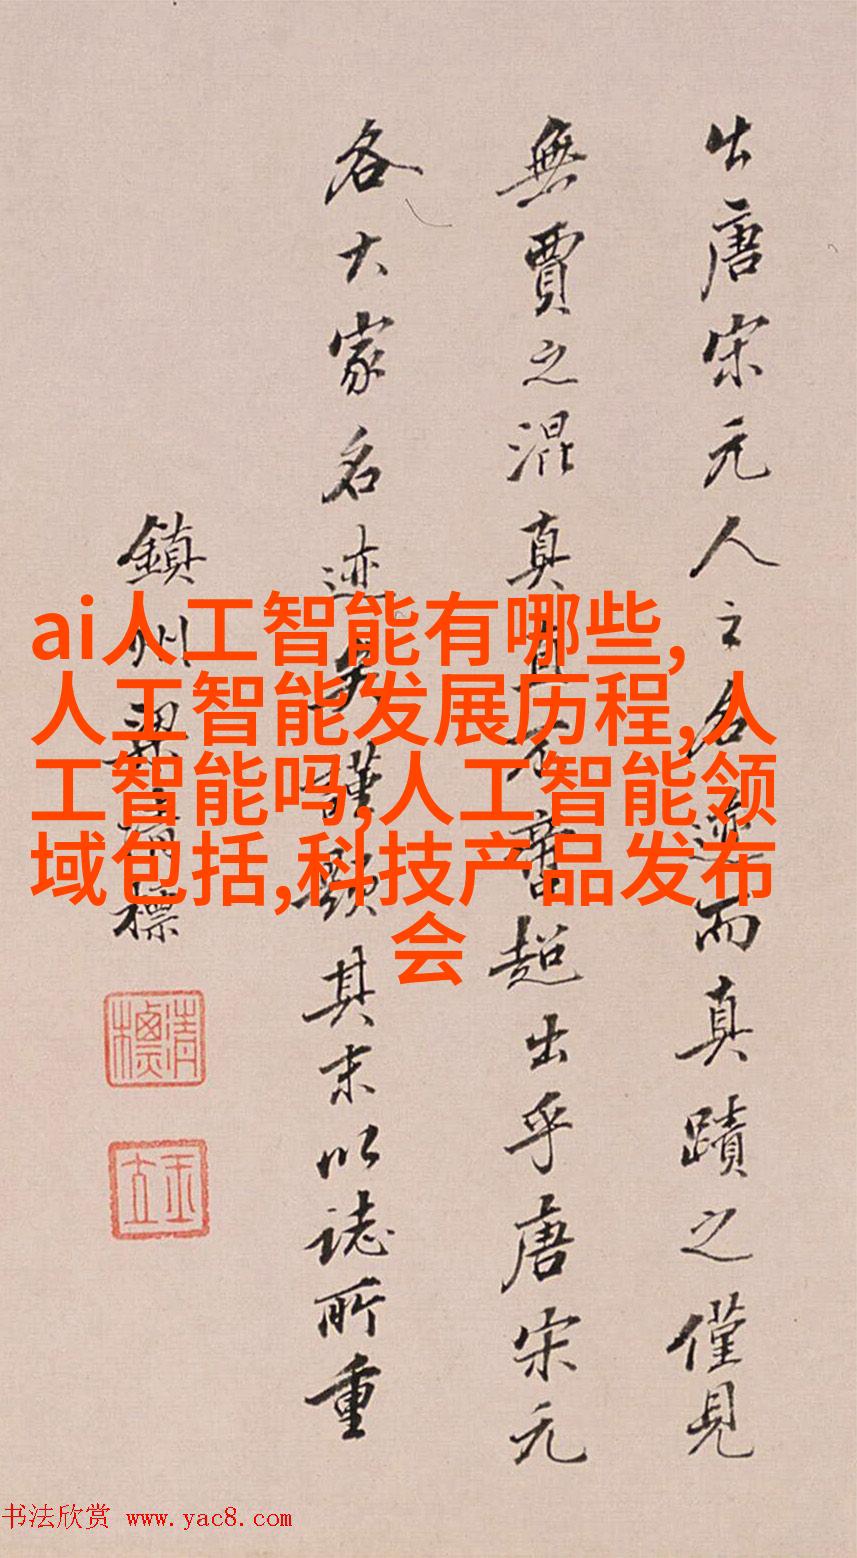 出唐宋元人之名迹而真蹟之僅見
無賈之混真真
超出乎唐宋元
各大家名迹矣謹題其末以誌所重
鎮州梁清標
ai人工智能有哪些,
人工智能发展历程,人
工智能吗,人工智能领
域包括,科技产品发布
会
书法欣赏 www.yac8.com